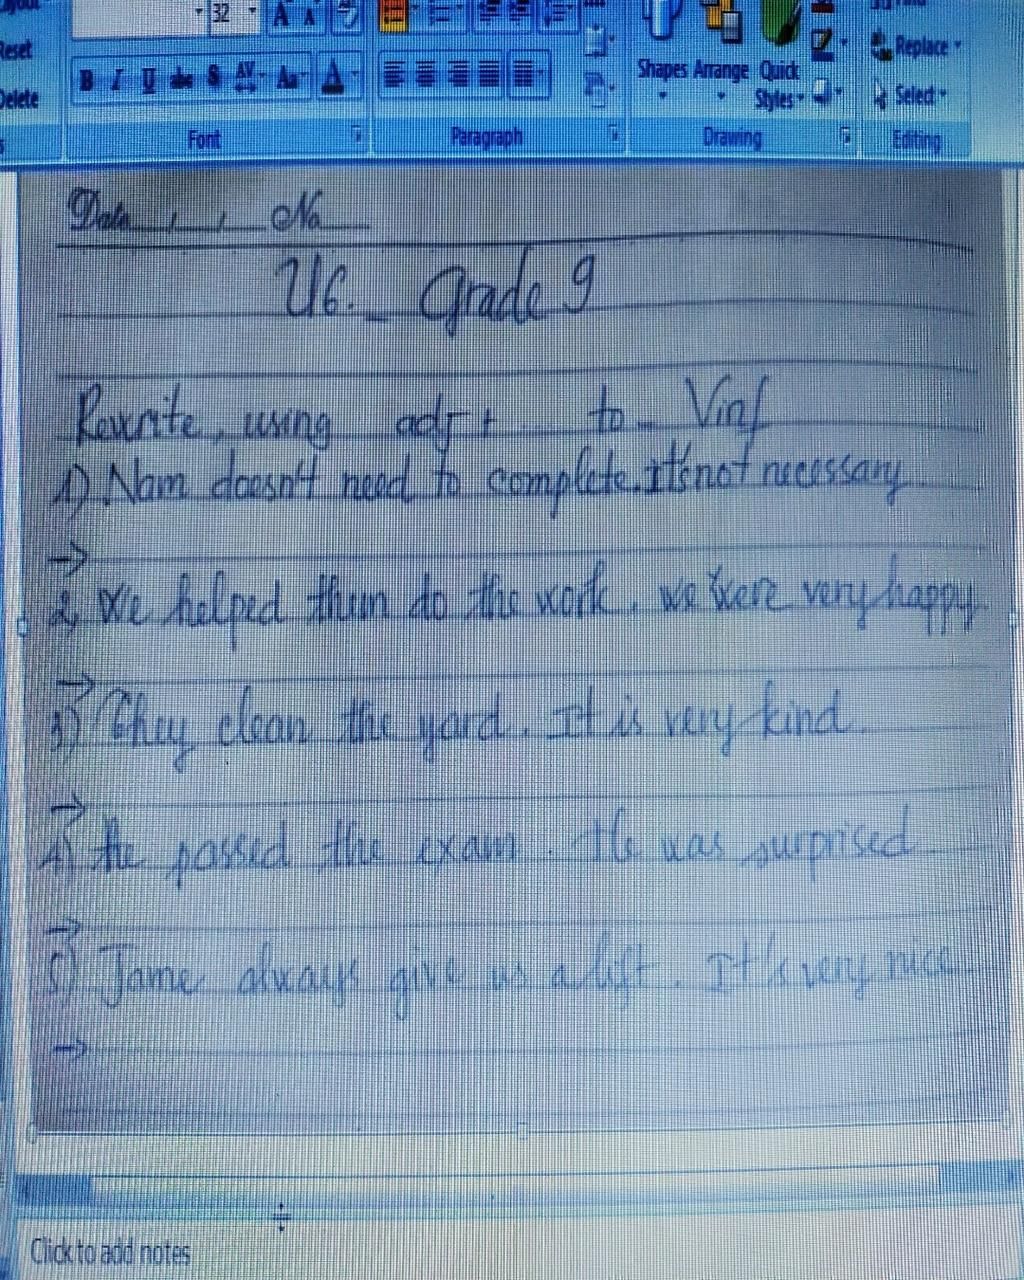 Reset
Delete
32
A A
B I U abc S AV Aa A
Font
Paragraph
Shapes Arrange Quick Styles
Drawing
Replace
Select
Editing
Date / / No
U6. _ Grade 9
Rewrite, using adj + to _ Vinf
1) Nam doesn't need to complete. It's not necessary.
→
2, We helped them do the work. We were very happy.
→
3) They clean the yard. It is very kind.
→
4) He passed the exam. He was surprised.
→
5) Jame always give us a lift. It's very nice.
→
Click to add notes